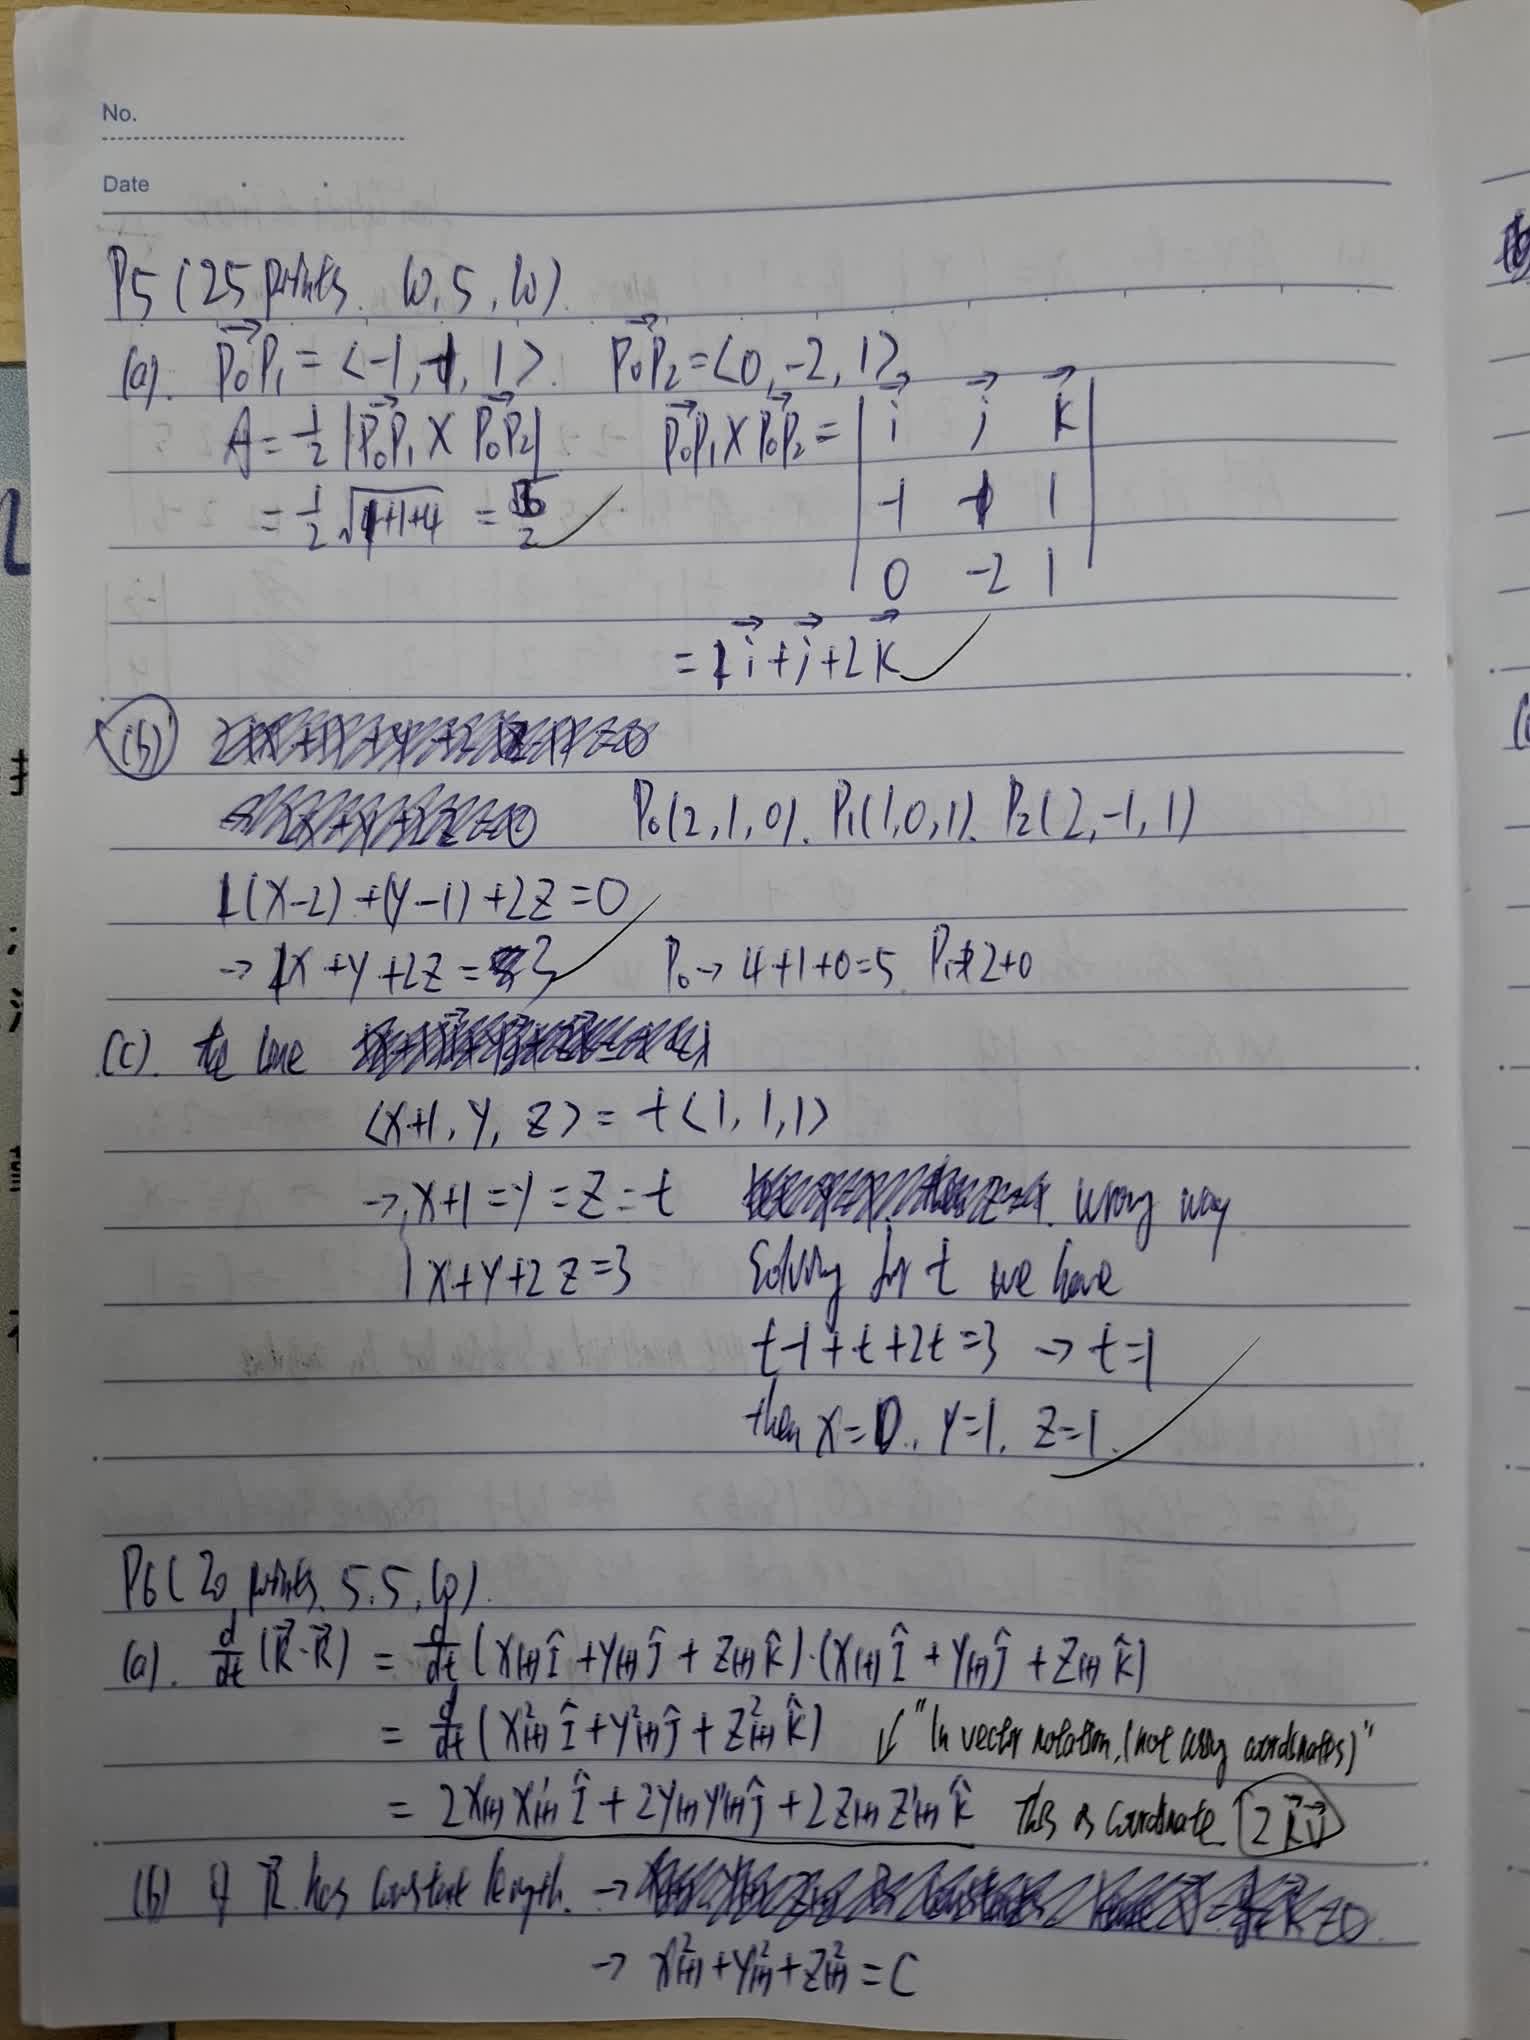 No.
Date
P5 (25 points. 10, 5, 10).
(a). P₀P₁→ = <-1, -1, 1>. P₀P₂→ = <0, -2, 1>
A = 1/2 |P₀P₁→ × P₀P₂→| P₀P₁→ × P₀P₂→ = | i→ j→ k→ |
= 1/2 √(1+1+4) = √6/2 | -1 -1 1 |
| 0 -2 1 |
= 1i→ + j→ + 2k→
(b)
P₀(2, 1, 0). P₁(1, 0, 1). P₂(2, -1, 1)
1(x-2) + (y-1) + 2z = 0
→ 1x + y + 2z = 3 P₀ → 4+1+0=5. P₁ 2+0
(c). the line
<x+1, y, z> = t<1, 1, 1>
→ x+1 = y = z = t wrong way
x+y+2z=3 Solving for t we have
t-1+t+2t=3 → t=1
then x=0, y=1, z=1.
P6 (20 points. 5, 5, 10).
(a). d/dt (R→·R→) = d/dt (x(t) î + y(t) ĵ + z(t) k̂)·(x(t) î + y(t) ĵ + z(t) k̂)
= d/dt (x²(t) î + y²(t) ĵ + z²(t) k̂) ↙ "In vector notation, (not using coordinates)"
= 2x(t) x'(t) î + 2y(t) y'(t) ĵ + 2z(t) z'(t) k̂ This is coordinate. 2R→V→
(b) if R→ has constant length. →
→ x²(t) + y²(t) + z²(t) = C